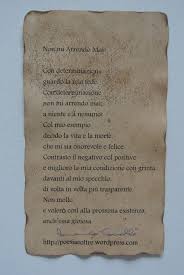 Non mi Arrendo Mai
Con determinazione
guardo la mia fede
Con determinazione
non mi arrendo mai,
a niente e a nessuno.
Col mio esempio
decido la vita e la morte
che mi sia onorevole e felice.
Contrasto il negativo col positivo
e miglioro la mia condizione con grinta
davanti al mio specchio
di volta in volta più trasparente.
Non mollo
e volerò così alla prossima esistenza
anch'essa gioiosa
http://poesiaoltre.wordpress.com